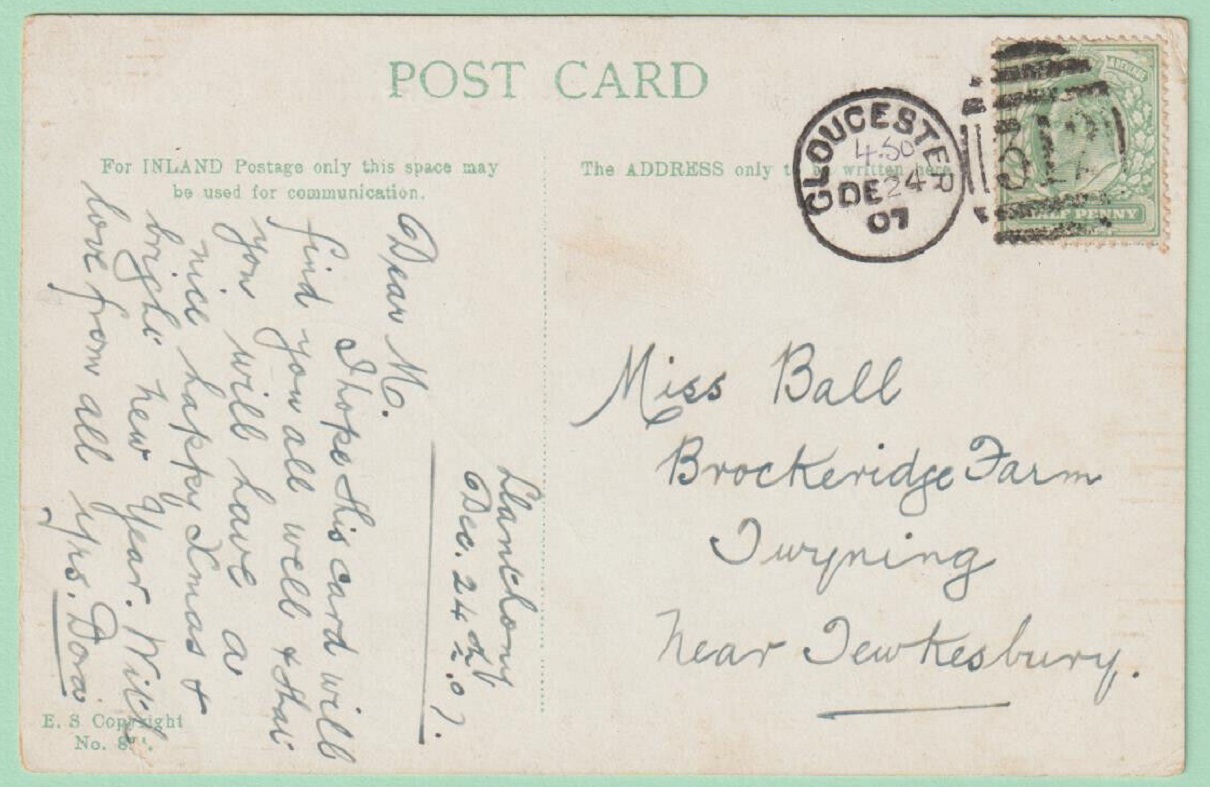 POST CARD
For INLAND Postage only this space may
be used for communication.
The ADDRESS only to be written here
GLOUCESTER
4.50
DE 24
07
HALF PENNY
Llanthony
Dec. 24th. 07.
Dear M.
I hope this card will
find you all well & that
you will have a
nice happy Xmas &
bright new Year. With
love from all yrs. Dora
Miss Ball
Brockeridge Farm
Twyning
Near Tewkesbury.
E. S Copyright
No.